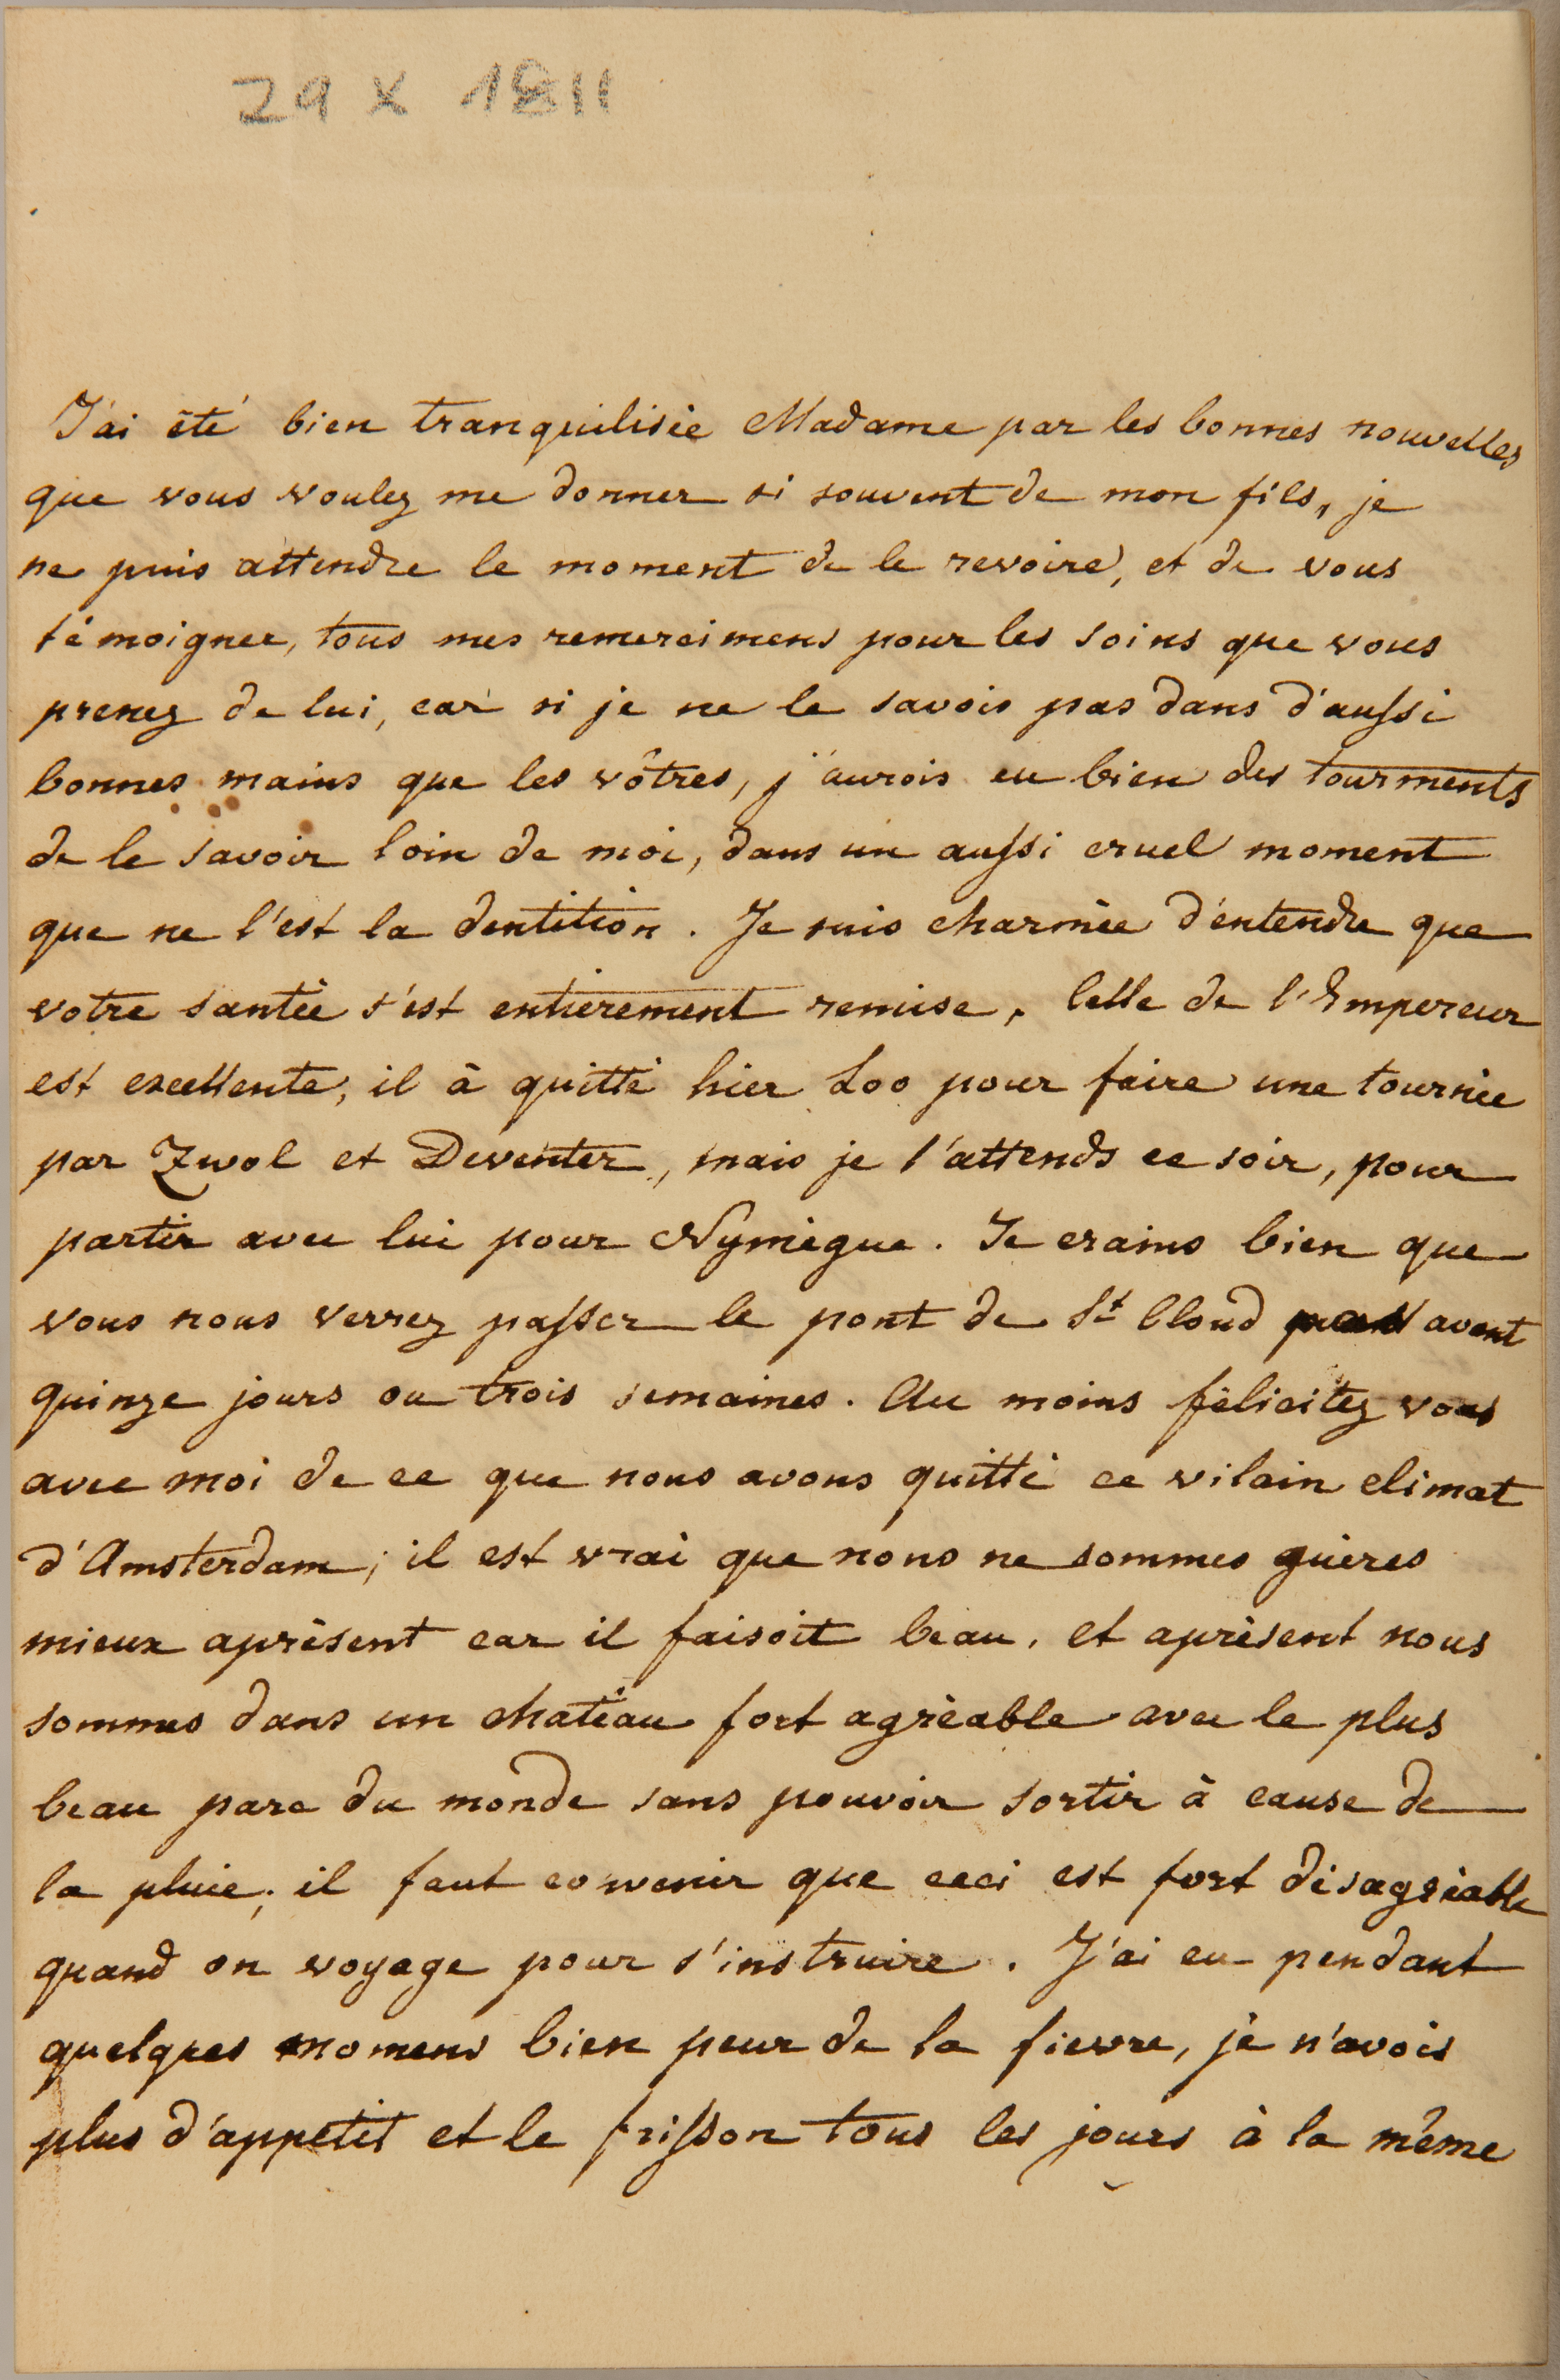 29 X 1811
J'ai été bien tranquilisée Madame par les bonnes nouvelles
que vous voulez me donner si souvent de mon fils, je
ne puis attendre le moment de le revoire, et de vous
témoigner, tous mes remercimens pour les soins que vous
prenez de lui, car si je ne le savois pas dans d'aussi
bonnes mains que les vôtres, j'aurois eu bien des tourments
de le savoir loin de moi, dans un aussi cruel moment
que ne l'est la dentition. Je suis charmée d'entendre que
votre santée s'est entierement remise, Celle de l'Empereur
est excellente, il à quitté hier Loo pour faire une tournée
par Zwol et Deventer, mais je l'attends ce soir, pour
partir avec lui pour Nymègue. Je crains bien que
vous nous verrez passer le pont de St Cloud avant
quinze jours ou trois semaines. Au moins félicitez vous
avec moi de ce que nous avons quitté ce vilain climat
d'Amsterdam; il est vrai que nous ne sommes guères
mieux aprèsent car il faisoit beau, et aprèsent nous
sommes dans un chateau fort agréable avec le plus
beau parc du monde sans pouvoir sortir à cause de
la pluie; il faut convenir que ceci est fort désagréable
quand on voyage pour s'instruire. J'ai eu pendant
quelques momens bien peur de la fievre, je n'avois
plus d'appetit et le frisson tous les jours à la même